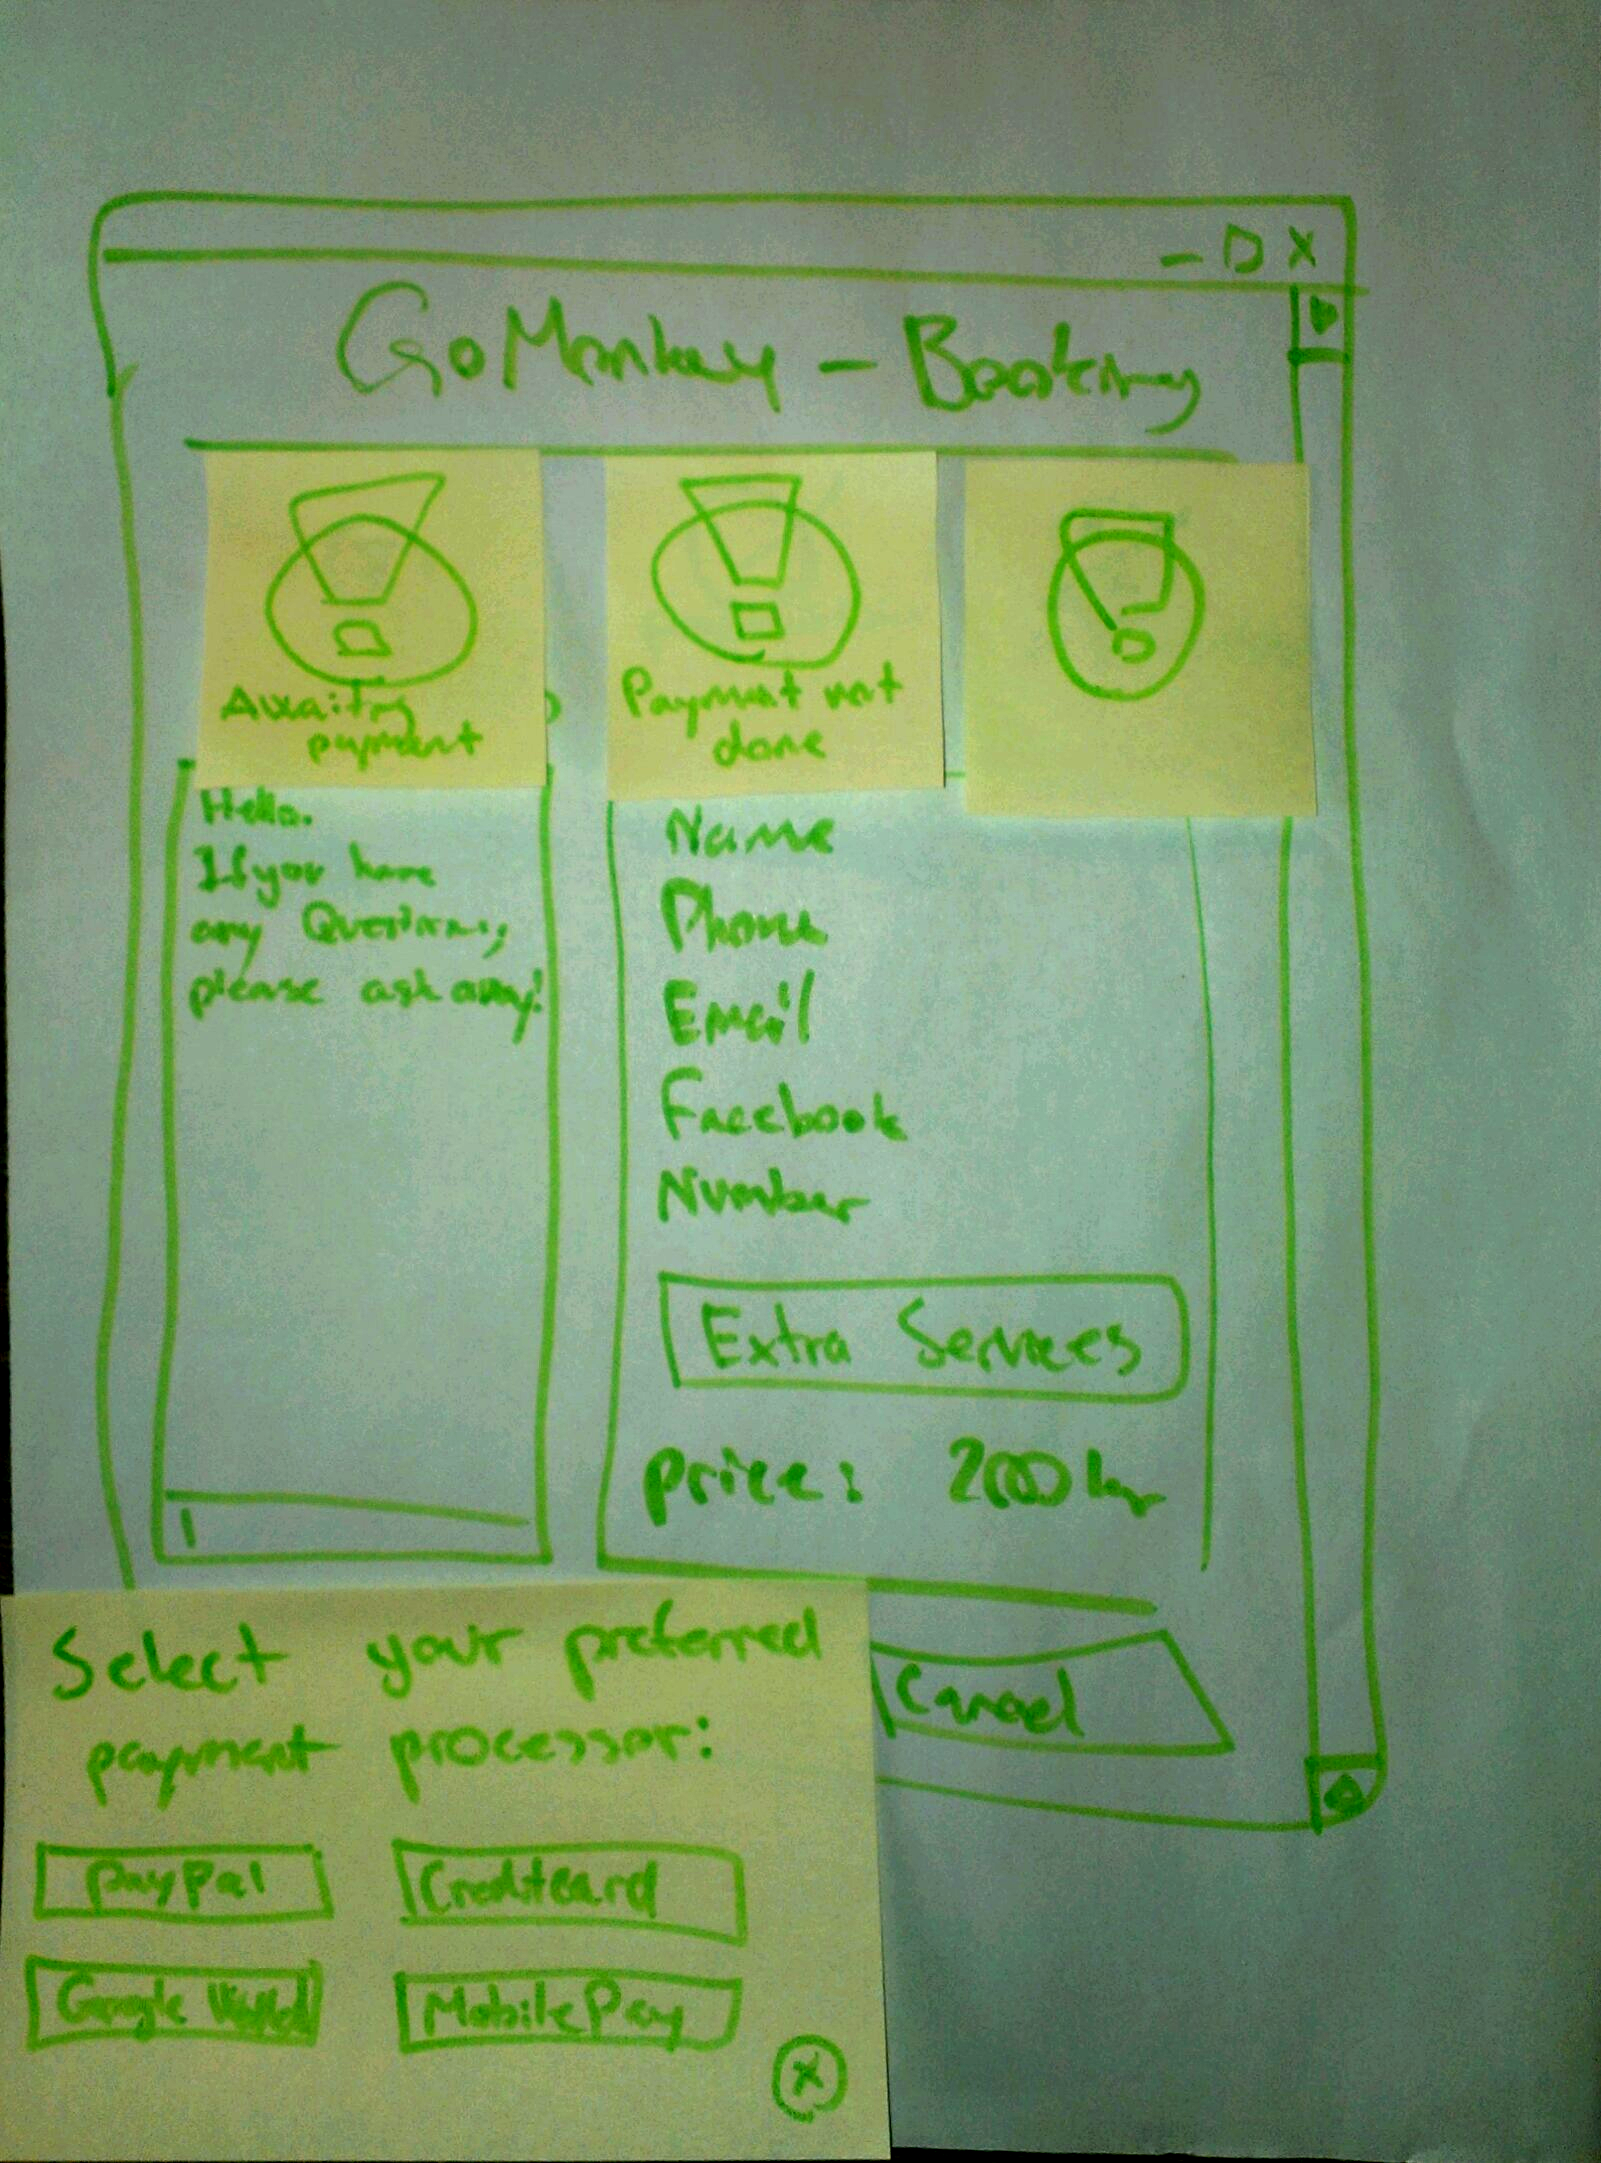 GoMonkey - Booking
Awaiting
payment
Payment not
done
Hello.
If you have
any Questions,
please ask away!
Name
Phone
Email
Facebook
Number
Extra Services
price: 200 kr
Cancel
Select your preferred
payment processor:
PayPal
Creditcard
Google
MobilePay
X